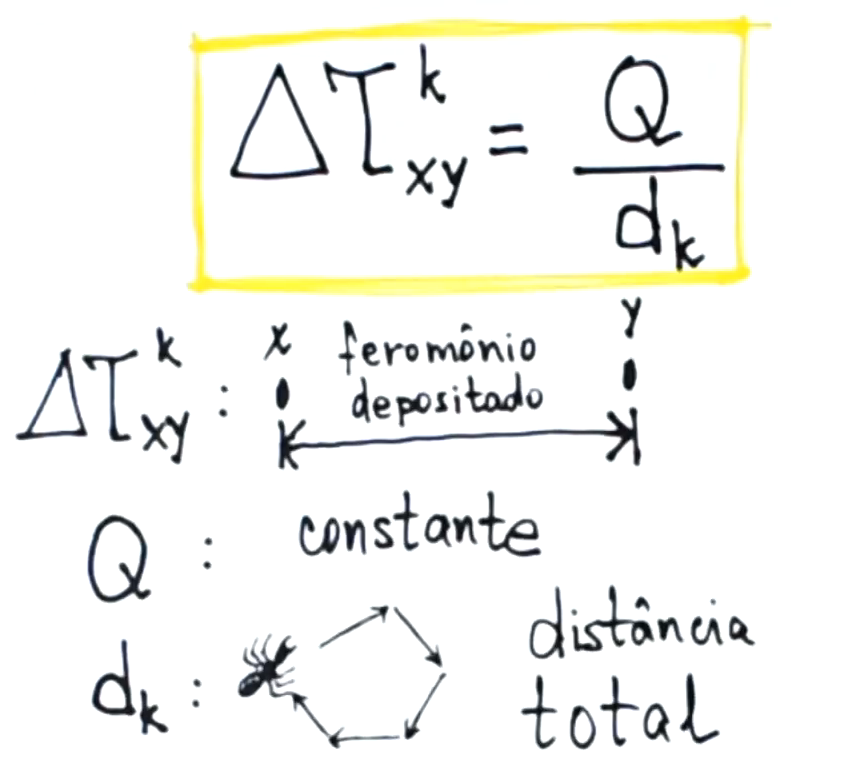 Δτ^k_xy = Q / d_k
x y
Δτ^k_xy : feromônio
depositado
Q : constante
d_k : distância
total